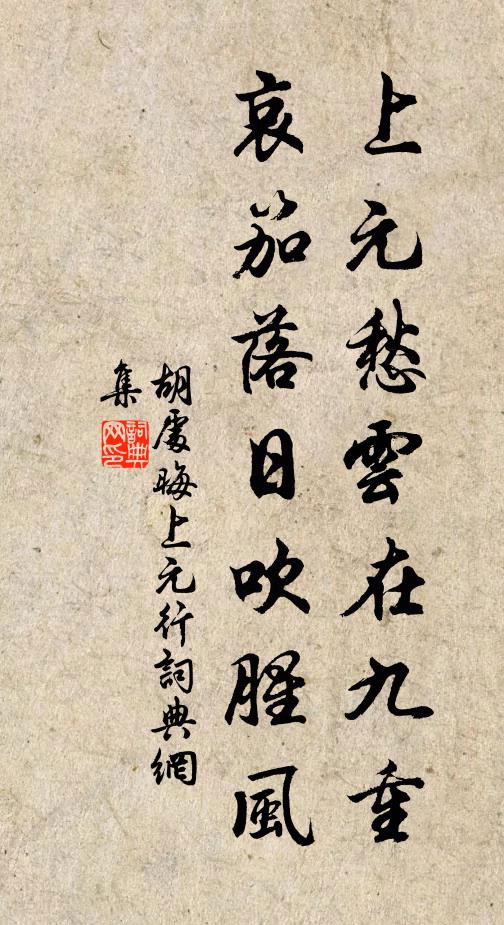 上元愁雲在九重
哀笳落日吹腥風
胡處晦上元行詞典網
集
詞典
网印